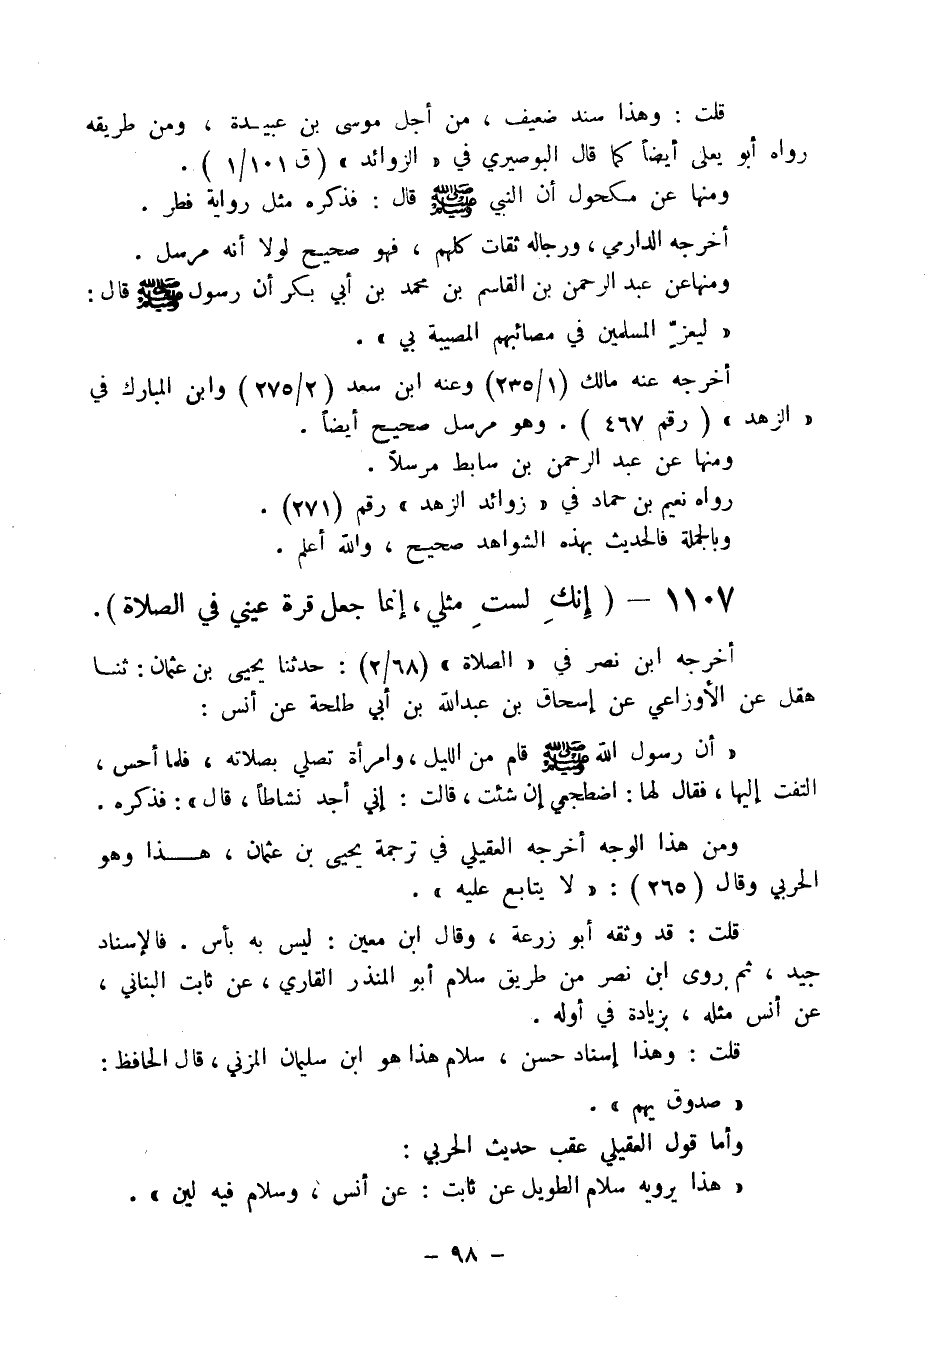 قلت : وهذا سند ضعيف ، من أجل موسى بن عبيـدة ، ومن طريقه
رواه أبو يعلى أيضاً كما قال البوصيري في « الزوائد » (ق ١/١٠١ ) .
ومنها عن مكحول أن النبي ﷺ قال : فذكره مثل رواية فطر .
أخرجه الدارمي ، ورجاله ثقات كلهم ، فهو صحيح لولا أنه مرسل .
ومنهاعن عبد الرحمن بن القاسم بن محمد بن أبي بكر أن رسول ﷺ قال :
« ليعزِّ المسلمين في مصائبهم المصيبة بي » .
أخرجه عنه مالك (٢٣٥/١) وعنه ابن سعد (٢٧٥/٢) وابن المبارك في
« الزهد » ( رقم ٤٦٧ ) . وهو مرسل صحيح أيضاً .
ومنها عن عبد الرحمن بن سابط مرسلاً .
رواه نعيم بن حماد في « زوائد الزهد » رقم (٢٧١) .
وبالجملة فالحديث بهذه الشواهد صحيح ، والله أعلم .
١١٠٧ – ( إنكِ لستِ مثلي ، إنما جعل قرة عيني في الصلاة ) .
أخرجه ابن نصر في « الصلاة » (٢/٦٨) : حدثنا يحيى بن عثمان : ثنـا
هقل عن الأوزاعي عن إسحاق بن عبدالله بن أبي طلحة عن أنس :
« أن رسول الله ﷺ قام من الليل ، وامرأة تصلي بصلاته ، فلما أحس ،
التفت إليها ، فقال لها : اضطجعي إن شئت ، قالت : إني أجد نشاطاً ، قال » : فذكره .
ومن هذا الوجه أخرجه العقيلي في ترجمة يحيى بن عثمان ، هـــذا وهو
الحربي وقال ( ٢٦٥ ) : « لا يتابع عليه » .
قلت : قد وثقه أبو زرعة ، وقال ابن معين : ليس به بأس . فالإسناد
جيد ، ثم روى ابن نصر من طريق سلام أبو المنذر القاري ، عن ثابت البناني ،
عن أنس مثله ، بزيادة في أوله .
قلت : وهذا إسناد حسن ، سلام هذا هو ابن سليمان المزني ، قال الحافظ :
« صدوق يهم » .
وأما قول العقيلي عقب حديث الحربي :
« هذا يرويه سلام الطويل عن ثابت : عن أنس ، وسلام فيه لين » .
– ٩٨ –